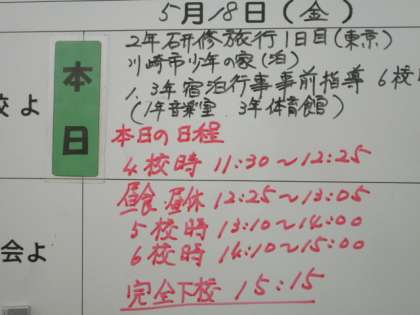 5月18日(金)
本日
2年研修旅行1日目(東京)
川崎市少年の家(泊)
1、3年宿泊行事事前指導 6校
(1年音楽室 3年体育館)
校よ
本日の日程
4校時 11:30〜12:25
昼食・昼休 12:25〜13:05
5校時 13:10〜14:00
6校時 14:10〜15:00
会よ
完全下校 15:15